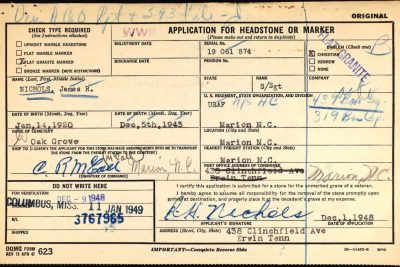 ORIGINAL
CHECK TYPE REQUIRED
(See Instructions attached)
WWII
APPLICATION FOR HEADSTONE OR MARKER
(Please make out and return in duplicate)
UPRIGHT MARBLE HEADSTONE
FLAT MARBLE MARKER
FLAT GRANITE MARKER
BRONZE MARKER (NOTE RESTRICTIONS)
ENLISTMENT DATE
SERIAL No.
19 061 874
EMBLEM (Check one)
CHRISTIAN
HEBREW
NONE
FLAT GRANITE
B
DISCHARGE DATE
PENSION No.
NAME (Last, First, Middle Initial)
NICHOLS, James H.
STATE
RANK
S/Sgt
U.S. REGIMENT, STATE ORGANIZATION, AND DIVISION
USAF
DATE OF BIRTH (Month, Day, Year)
Jan.14,1920
DATE OF DEATH (Month, Day, Year)
Dec.5th,1943
NAME OF CEMETERY
Oak Grove
LOCATION (City and State)
Marion N.C.
SHIP TO
Marion N.C.
NEAREST FREIGHT STATION (City and State)
Marion N.C.
POST OFFICE ADDRESS OF CONSIGNEE
438 Clinchfield Ave
Erwin Tenn
Marion, N.C.
DO NOT WRITE HERE
FOR VERIFICATION
DEC - 9 1948
COLUMBUS, MISS. 11 JAN 1949
3767965
I certify this application is submitted for a stone for the unmarked grave of a veteran.
I hereby agree to assume all responsibility for the removal of the stone promptly upon arrival at destination, and properly place it at the decedent's grave at my expense.
H. H. Nichols
Dec.1,1948
ADDRESS (Street, City, State)
438 Clinchfield Ave
Erwin Tenn
OQMG FORM
REV 15 APR 47
623
IMPORTANT—Complete Reverse Side
GPO